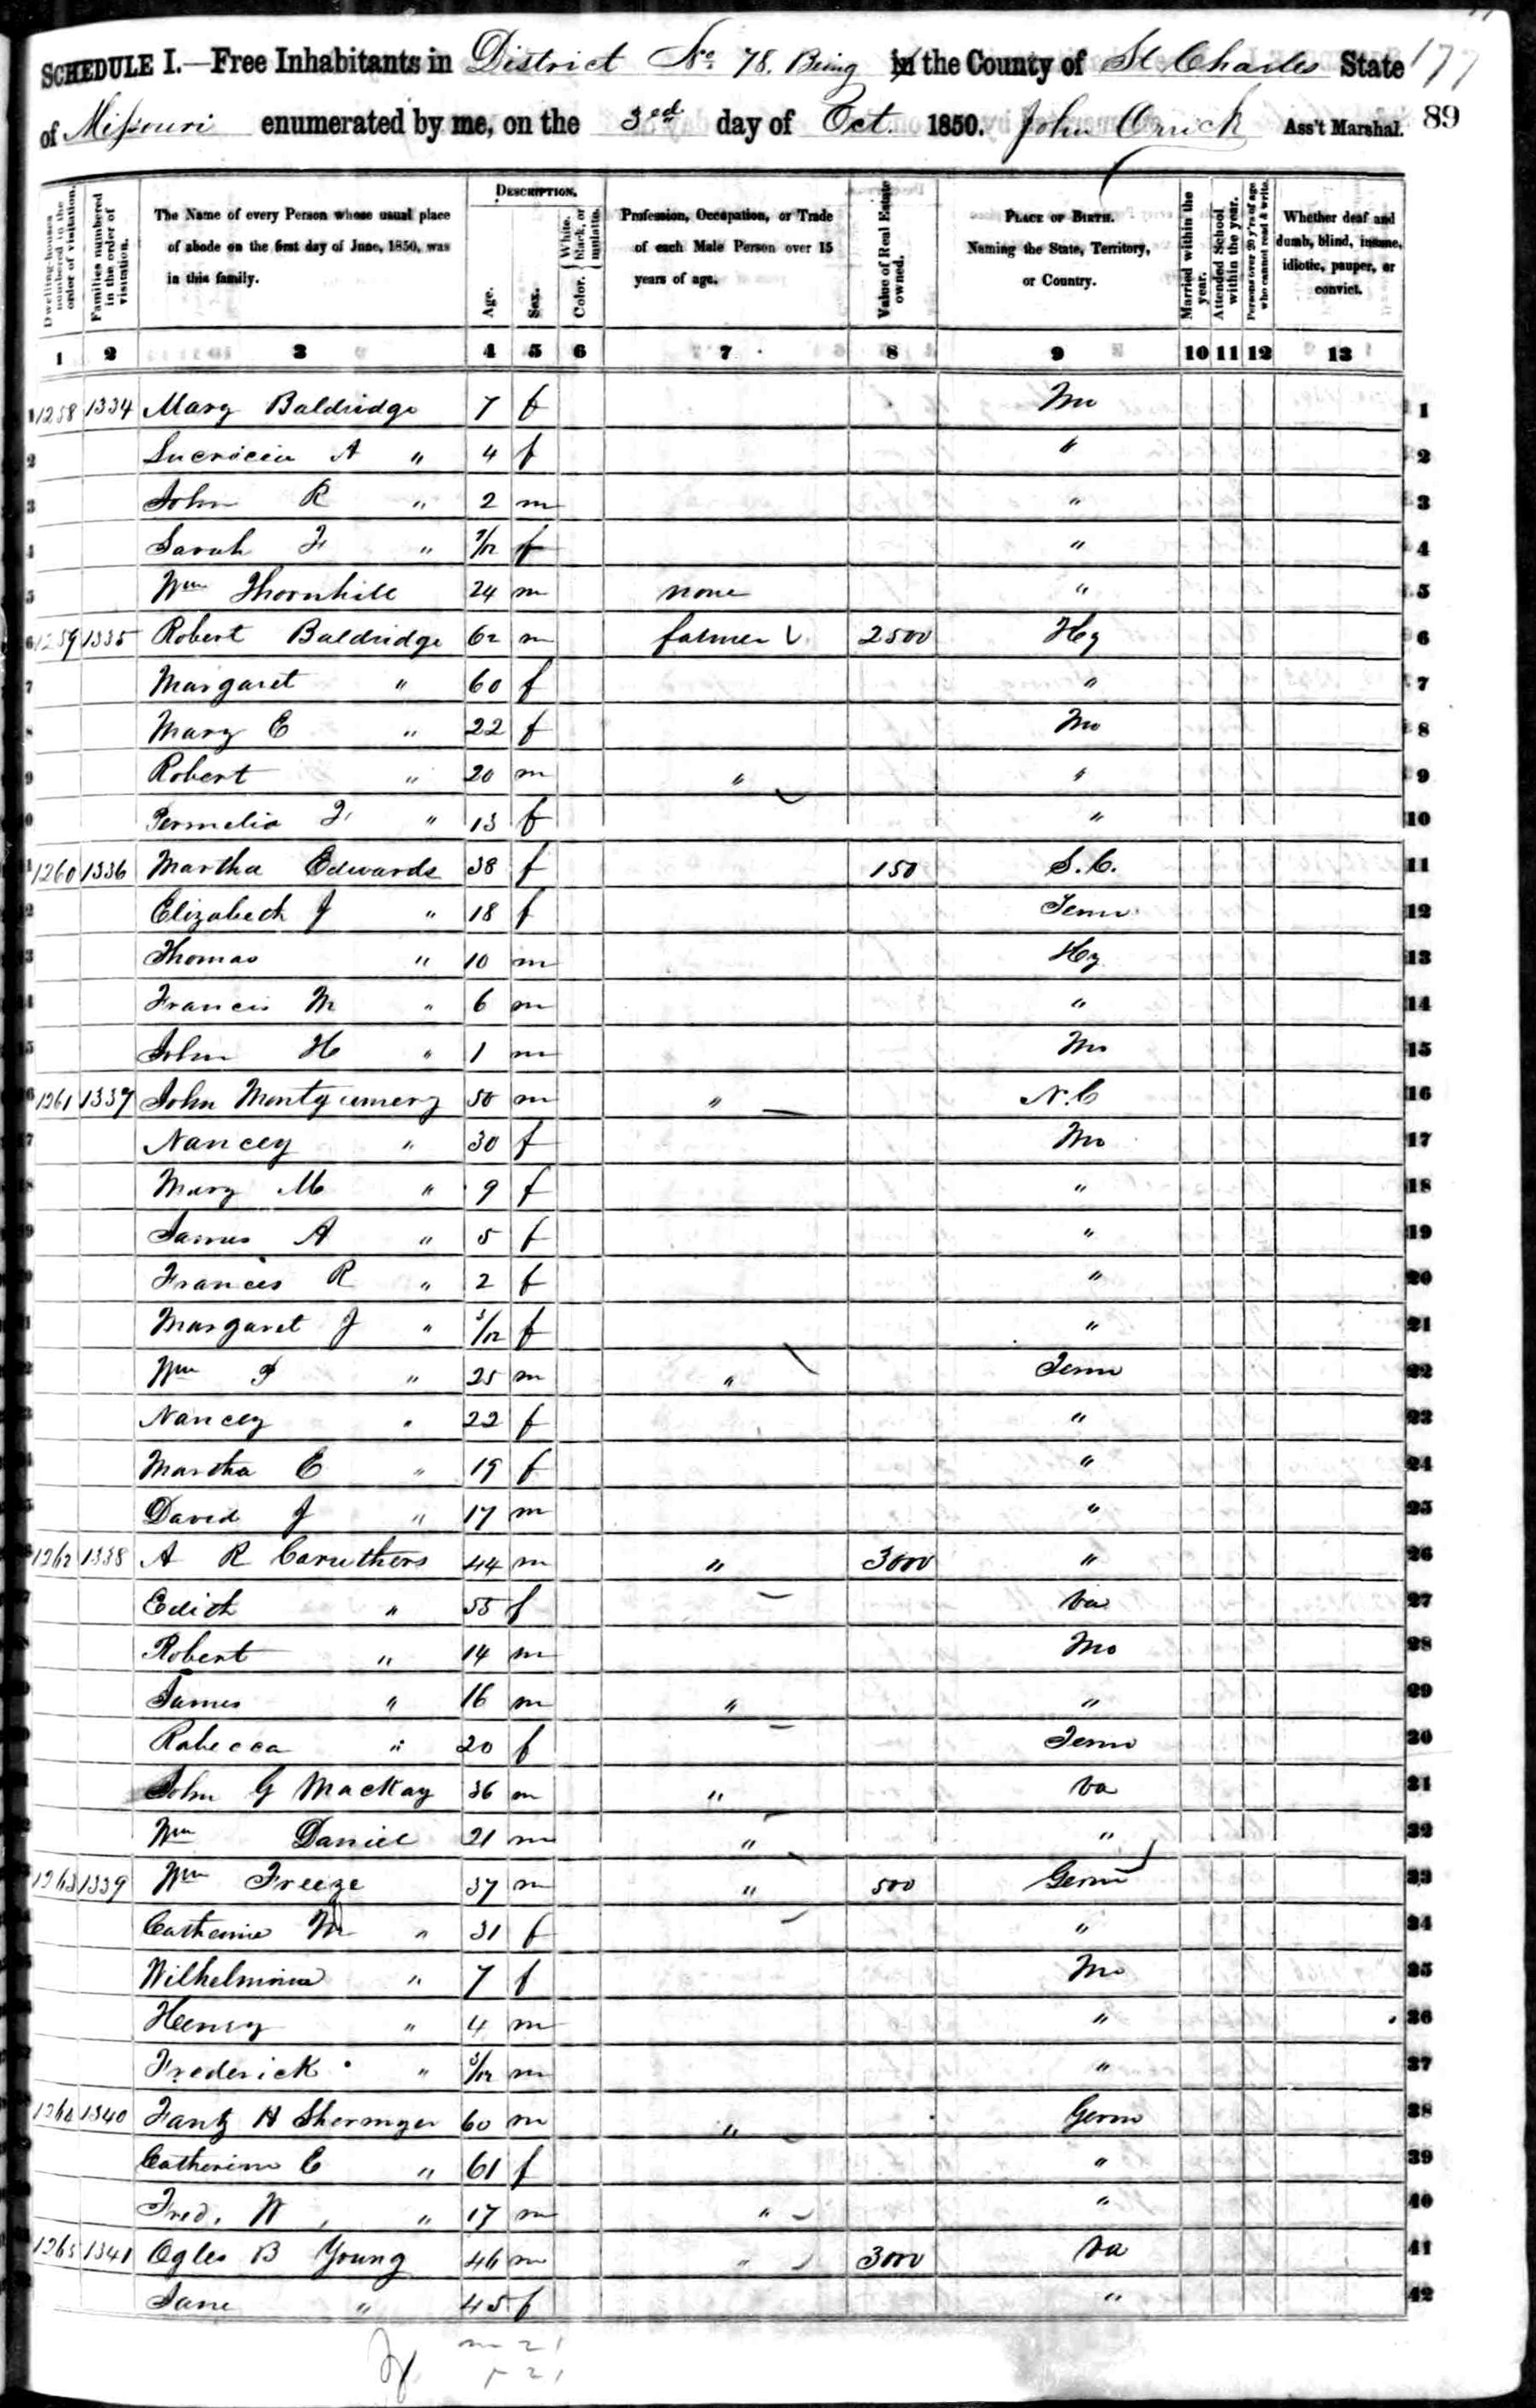 SCHEDULE I.—Free Inhabitants in District No. 78. Being in the County of St Charles State 177
of Missouri enumerated by me, on the 3rd day of Oct. 1850. John Orrick Ass't Marshal. 89
Dwelling-houses numbered in the order of visitation.
Families numbered in the order of visitation.
The Name of every Person whose usual place of abode on the first day of June, 1850, was in this family.
DESCRIPTION.
Age.
Sex.
Color. { White, black, or mulatto.
Profession, Occupation, or Trade of each Male Person over 15 years of age.
Value of Real Estate owned.
PLACE OF BIRTH. Naming the State, Territory, or Country.
Married within the year.
Attended School within the year.
Persons over 20 y'rs of age who cannot read & write.
Whether deaf and dumb, blind, insane, idiotic, pauper, or convict.
1 2 3 4 5 6 7 8 9 10 11 12 13
1 1258 1334 Mary Baldridge 7 f Mo 1
2 Lucrecia A " 4 f " 2
3 John R " 2 m " 3
4 Sarah F " /12 f " 4
5 Wm Thornhill 24 m none " 5
6 1259 1335 Robert Baldridge 62 m farmer 2500 Ky 6
7 Margaret " 60 f " 7
8 Mary E " 22 f Mo 8
9 Robert " 20 m " " 9
Permelia F " 13 f " 10
1260 1336 Martha Edwards 38 f 150 S.C. 11
Elizabeth J " 18 f Tenn 12
Thomas " 10 m Ky 13
Francis M " 6 m " 14
John H " 1 m Mo 15
1261 1337 John Montgumery 50 m " N.C 16
Nancey " 30 f Mo 17
Mary M " 9 f " 18
James A " 5 f " 19
Francis R " 2 f " 20
Margaret J " 3/12 f " 21
Wm " 25 m " Tenn 22
Nancey " 22 f " 23
Martha E " 19 f " 24
David J " 17 m " 25
1262 1338 A R Caruthers 44 m " 3000 " 26
Edith " 55 f Va 27
Robert " 14 m Mo 28
James " 16 m " " 29
Rabecca " 20 f Tenn 30
John G Mackay 36 m " Va 31
Wm Daniel 21 m " " 32
1263 1339 Wm Freeze 37 m " 500 Germ 33
Catherine M " 31 f " 34
Wilhelmina " 7 f Mo 35
Henry " 4 m " 36
Frederick " 3/12 m " 37
1264 1340 Fantz H Shermyer 60 m " Germ 38
Catherine E " 61 f " 39
Fred. W " 17 m " " 40
1265 1341 Ogles B Young 46 m " 3000 Va 41
Jane " 45 f " 42
m 21
f 21